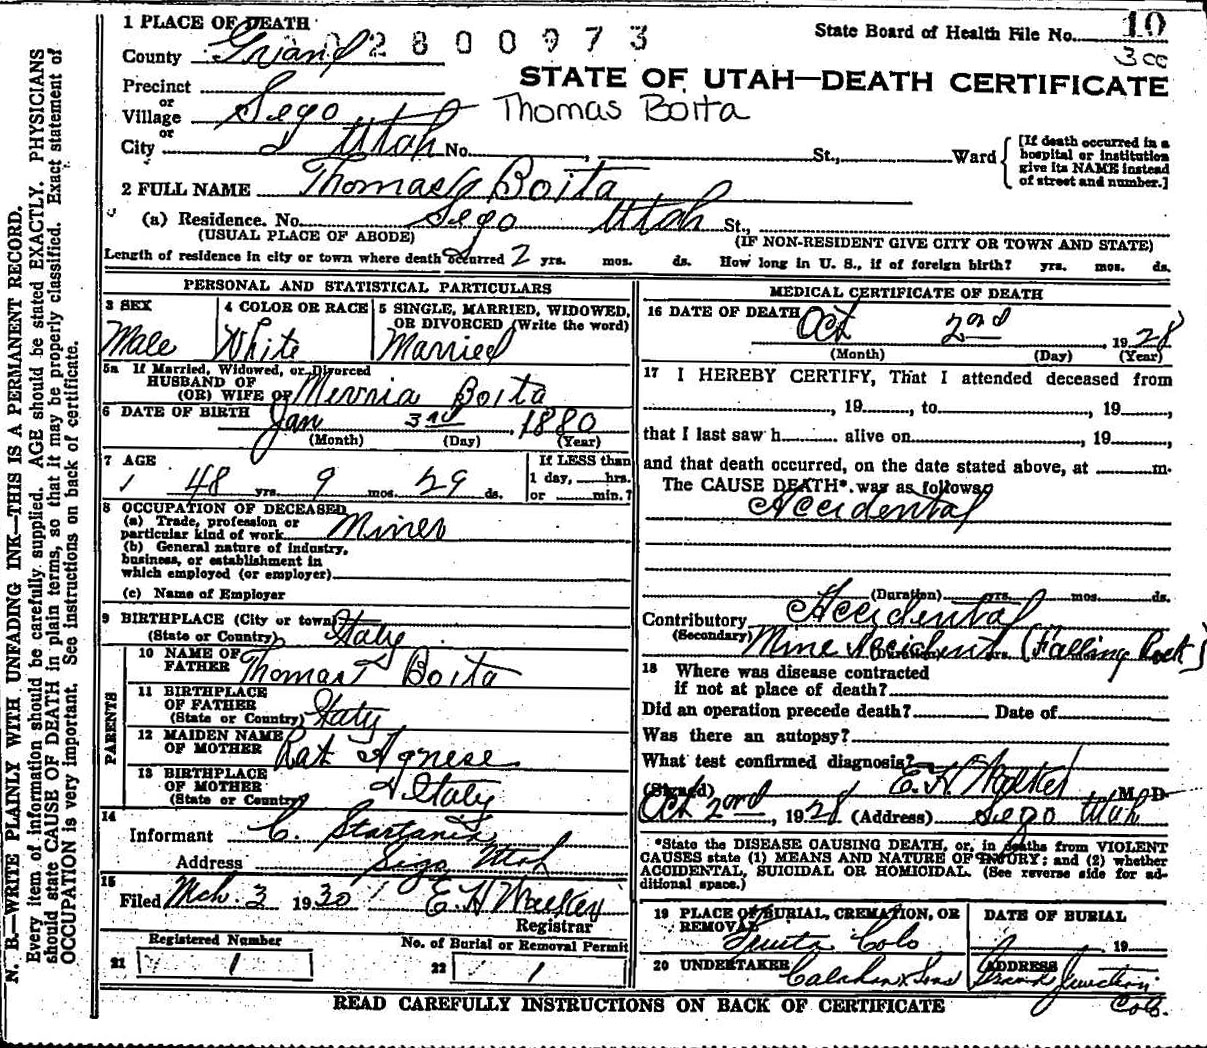 1 PLACE OF DEATH
02800973
State Board of Health File No. 10
3cc
County Grand
STATE OF UTAH—DEATH CERTIFICATE
Precinct
or
Village Sego
Thomas Boita
or
City Utah No. , St., Ward
[If death occurred in a hospital or institution give its NAME instead of street and number.]
2 FULL NAME Thomas Boita
(a) Residence. No. Sego Utah St.,
(USUAL PLACE OF ABODE)
(IF NON-RESIDENT GIVE CITY OR TOWN AND STATE)
Length of residence in city or town where death occurred 2 yrs. mos. ds. How long in U. S., if of foreign birth? yrs. mos. ds.
PERSONAL AND STATISTICAL PARTICULARS
3 SEX
Male
4 COLOR OR RACE
White
5 SINGLE, MARRIED, WIDOWED,
OR DIVORCED (Write the word)
Married
5a If Married, Widowed, or Divorced
HUSBAND OF
(OR) WIFE OF Boita
6 DATE OF BIRTH Jan 3rd, 1880
(Month) (Day) (Year)
7 AGE
48 yrs. 9 mos. 29 ds.
If LESS than
1 day, hrs.
or min.?
8 OCCUPATION OF DECEASED
(a) Trade, profession or
particular kind of work Miner
(b) General nature of industry,
business, or establishment in
which employed (or employer)
(c) Name of Employer
9 BIRTHPLACE (City or town)
(State or Country) Italy
PARENTS
10 NAME OF
FATHER Thomas Boita
11 BIRTHPLACE
OF FATHER
(State or Country) Italy
12 MAIDEN NAME
OF MOTHER Kat Agnese
13 BIRTHPLACE
OF MOTHER
(State or Country) Italy
14
Informant C.
Address Sego Utah
15
Filed Mch. 3 1930 E H Walker
Registrar
Registered Number
21 1
No. of Burial or Removal Permit
22 1
MEDICAL CERTIFICATE OF DEATH
16 DATE OF DEATH
Oct 2nd, 1928
(Month) (Day) (Year)
17 I HEREBY CERTIFY, That I attended deceased from
, 19 , to , 19 ,
that I last saw h alive on , 19 ,
and that death occurred, on the date stated above, at m.
The CAUSE DEATH* was as follows
Accidental
(Duration) yrs. mos. ds.
Contributory Accidental
(Secondary) Mine Accident (Falling Rock)
18 Where was disease contracted
if not at place of death?
Did an operation precede death? Date of
Was there an autopsy?
What test confirmed diagnosis?
(Signed) E. H Walker M D
Oct 2nd, 1928 (Address) Sego Utah
*State the DISEASE CAUSING DEATH, or, in deaths from VIOLENT
CAUSES state (1) MEANS AND NATURE OF INJURY; and (2) whether
ACCIDENTAL, SUICIDAL OR HOMICIDAL. (See reverse side for ad-
ditional space.)
19 PLACE OF BURIAL, CREMATION, OR
REMOVAL
Fruita Colo
DATE OF BURIAL
19
20 UNDERTAKER
Calahan & Sons
ADDRESS
Grand Junction
Colo.
READ CAREFULLY INSTRUCTIONS ON BACK OF CERTIFICATE
N. B.—WRITE PLAINLY WITH UNFADING INK—THIS IS A PERMANENT RECORD.
Every item of information should be carefully supplied. AGE should be stated EXACTLY. PHYSICIANS
should state CAUSE OF DEATH in plain terms, so that it may be properly classified. Exact statement of
OCCUPATION is very important. See instructions on back of certificate.